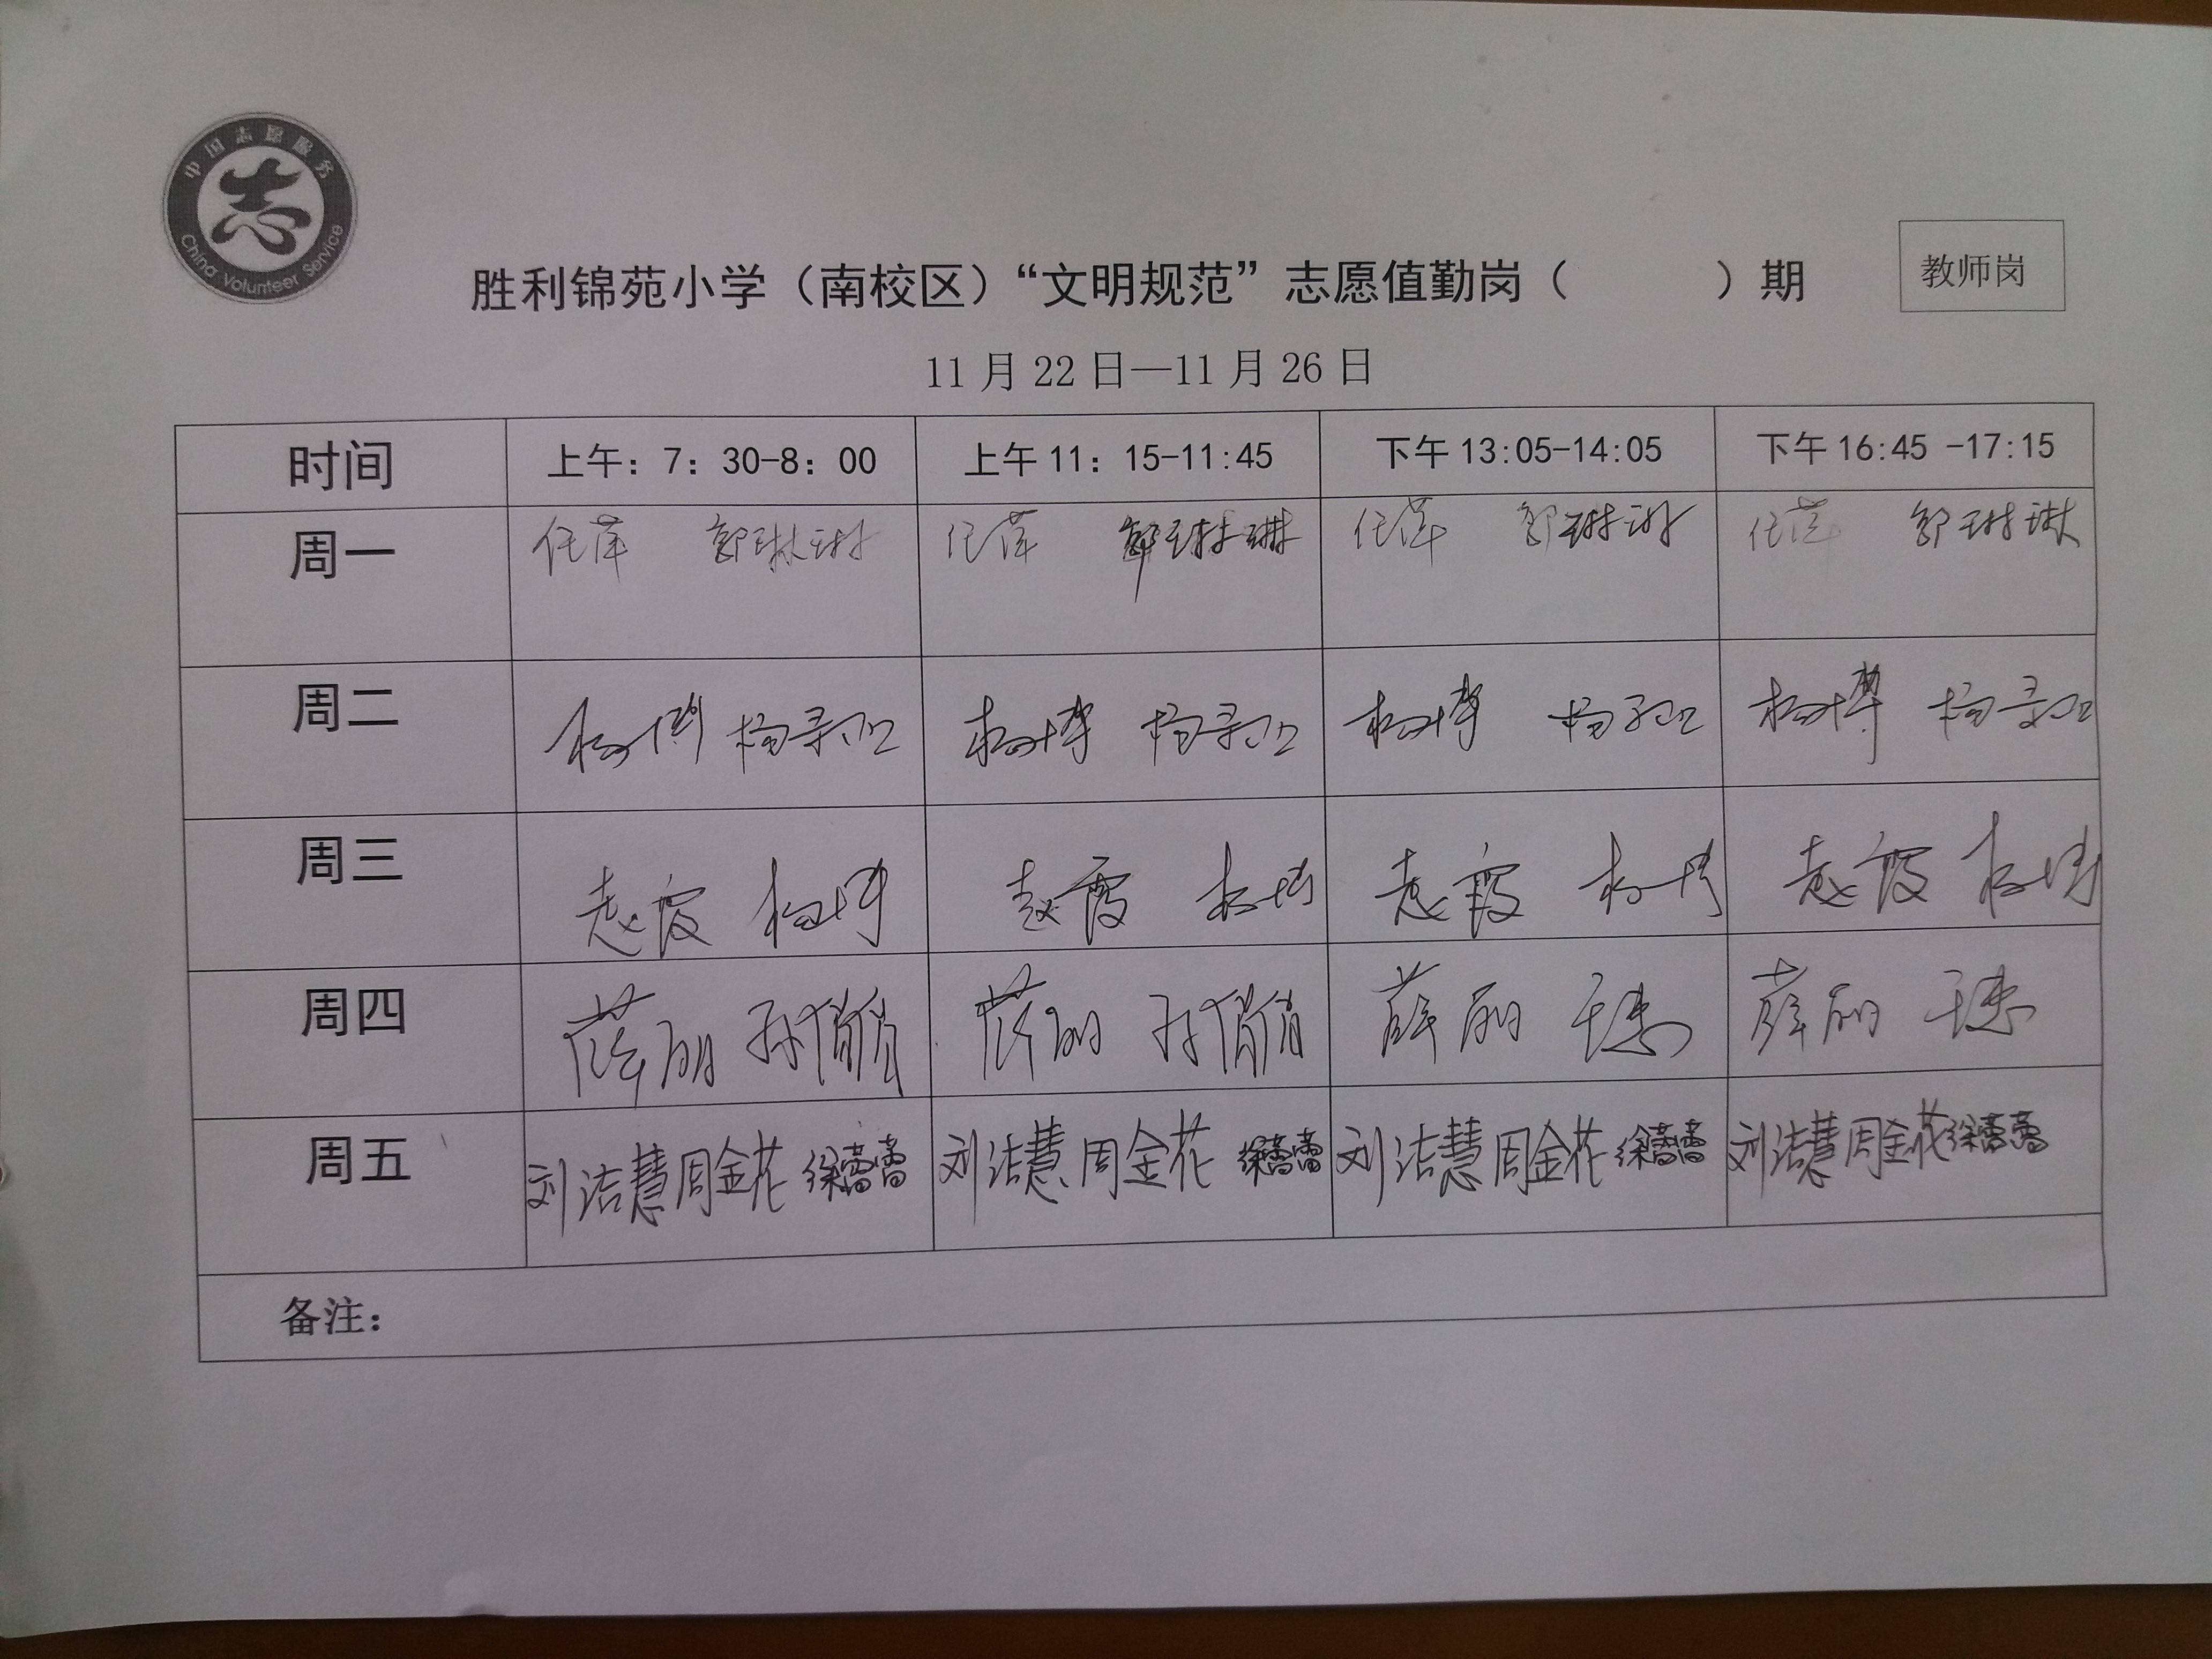 中国志愿服务
志
China Volunteer Service
胜利锦苑小学（南校区）“文明规范”志愿值勤岗（ ）期
教师岗
11月22日—11月26日
时间 上午：7：30-8：00 上午11：15-11:45 下午13:05-14:05 下午16:45 -17:15
周一 任萍 郭琳琳 任萍 郭琳琳 任萍 郭琳琳 任萍 郭琳琳
周二
周三 赵霞 赵霞 赵霞 赵霞
周四 薛丽 孙俏俏 薛丽 孙俏俏 薛丽 薛丽
周五 刘洁慧 周金花 徐蕾蕾 刘洁慧 周金花 徐蕾蕾 刘洁慧 周金花 徐蕾蕾 刘洁慧 周金花 徐蕾蕾
备注：